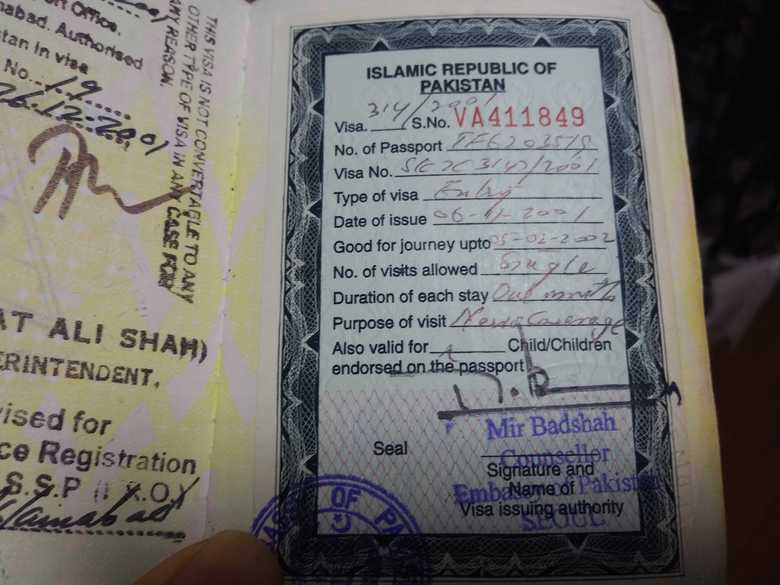 rt Office,
abad. Authorised
tan in visa
No. 19
26.12.2001
THIS VISA IS NOT CONVERTABLE TO ANY
OTHER TYPE OF VISA IN ANY CASE FOR
ANY REASON.
AT ALI SHAH)
ERINTENDENT,
ised for
ce Registration
S.S.P
Islamabad
ISLAMIC REPUBLIC OF
PAKISTAN
Visa. 314/2001 S.No. VA411849
No. of Passport
Visa No. /2001
Type of visa Entry
Date of issue 06-11-2001
Good for journey upto 05-02-2002
No. of visits allowed Single
Duration of each stay One month
Purpose of visit News Coverage
Also valid for Child/Children
endorsed on the passport
Mir Badshah
Counsellor
Embassy of Pakistan
SEOUL
Seal
Signature and
Name of
Visa issuing authority
OF PA